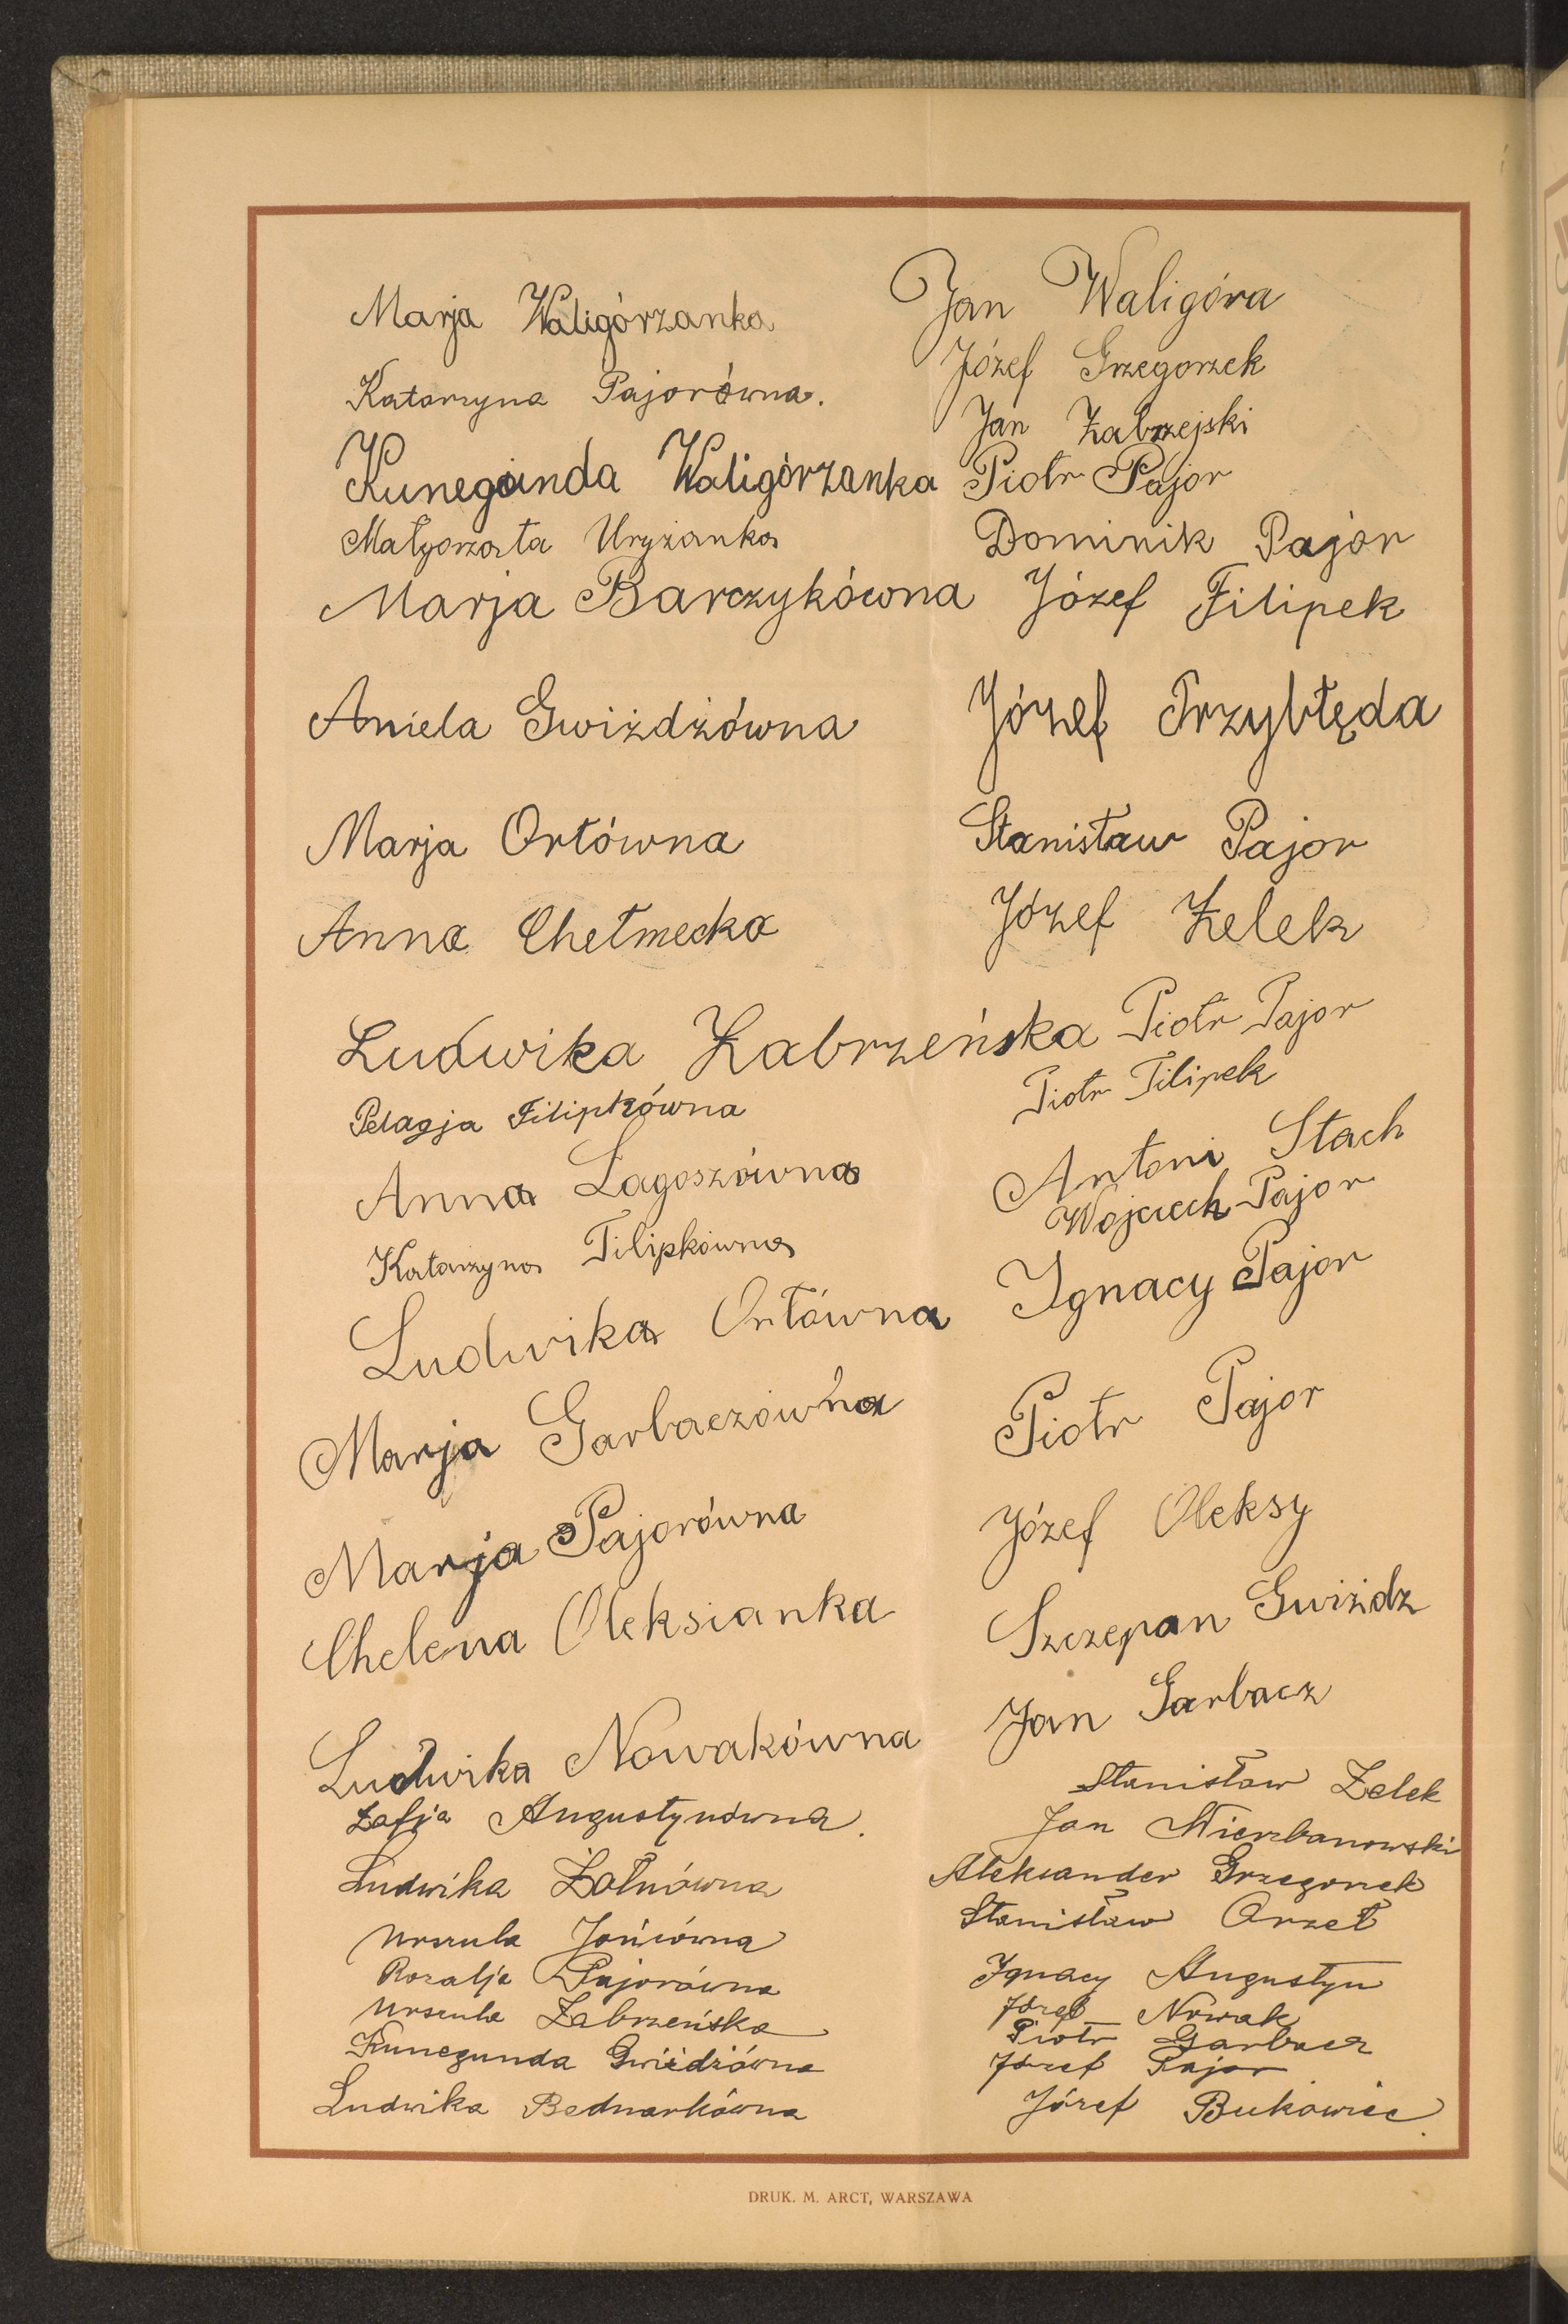 Marja Waligórzanka
Katarzyna Pajorówna.
Kunegunda Waligórzanka
Małgorzata Uryżanka
Marja Barczykówna
Aniela Gwiżdżówna
Marja Orłówna
Anna Chełmecka
Ludwika Zabrzeńska
Pelagja Filipkówna
Anna Łagoszówna
Katarzyna Filipkówna
Ludwika Orłówna
Marja Garbaczówna
Marja Pajorówna
Chelena Oleksianka
Ludwika Nowakówna
Zofja Augustynówna.
Ludwika Żołnówna
Urszula Jońcówna
Rozalja Pajorówna
Urszula Zabrzeńska
Kunegunda Gwiżdżówna
Ludwika Bednarkówna
Jan Waligóra
Józef Grzegorzek
Jan Zabrzejski
Piotr Pajor
Dominik Pajor
Józef Filipek
Józef Przybłęda
Stanisław Pajor
Józef Zelek
Piotr Pajor
Piotr Filipek
Antoni Stach
Wojciech Pajor
Ignacy Pajor
Piotr Pajor
Józef Oleksy
Szczepan Gwiżdz
Jan Garbacz
Stanisław Zelek
Jan Wierzbanowski
Aleksander Grzegorzek
Stanisław Orzeł
Ignacy Augustyn
Józef Nowak
Piotr Garbacz
Józef Pajor
Józef Bukowiec.
DRUK. M. ARCT, WARSZAWA